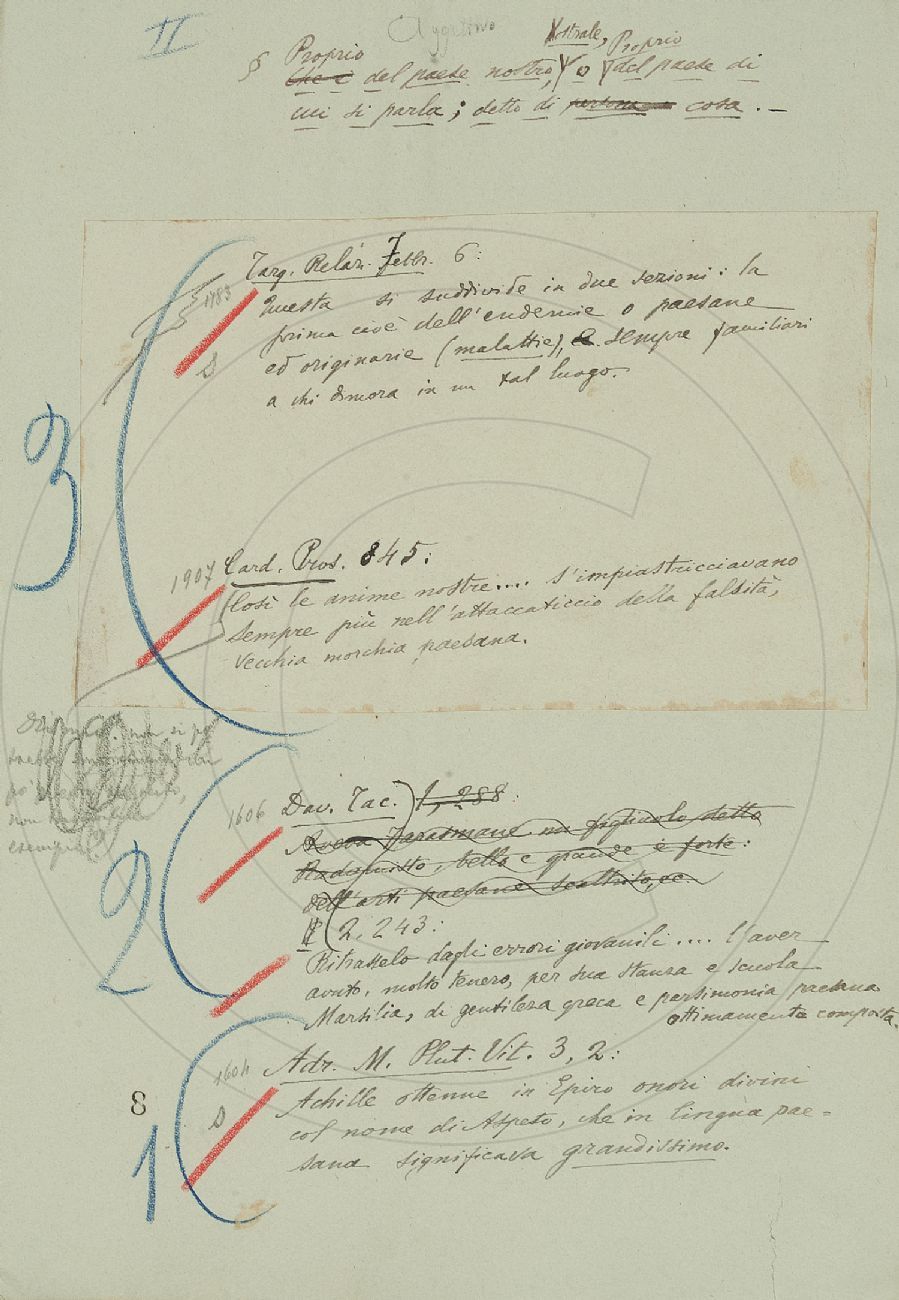 II
Aggettivo
Nostrale, Proprio
§ Proprio
Che è del paese nostro, o del paese di
cui si parla; detto di persona o cosa. —
Targ. Relaz. Febbr. 6:
1783
Questa si suddivide in due sezioni: la
prima cioè dell'endemie o paesane
ed originarie (malattie), e sempre familiari
S
a chi dimora in un tal luogo.
3
1907 Card. Pros. 845:
Così le anime nostre.... s'impiastricciavano
sempre più nell'attaccaticcio della falsità,
vecchia morchia paesana.
non si
esempio
1606 Dav. Tac. 1, 288:
Aveva Farasmane un figliuolo detto
Radamisto, bello e grande e forte:
dell'arti paesane scaltrito, ec.
2
2, 243:
Ritrasselo dagli errori giovanili.... l'aver
avuto, molto tenero, per sua stanza e scuola
Marsilia, di gentileza greca e parsimonia paesana
ottimamente composta.
1604 Adr. M. Plut. Vit. 3, 2:
8
S
Achille ottenne in Epiro onori divini
col nome di Aspeto, che in lingua pae-
1
sana significava grandissimo.